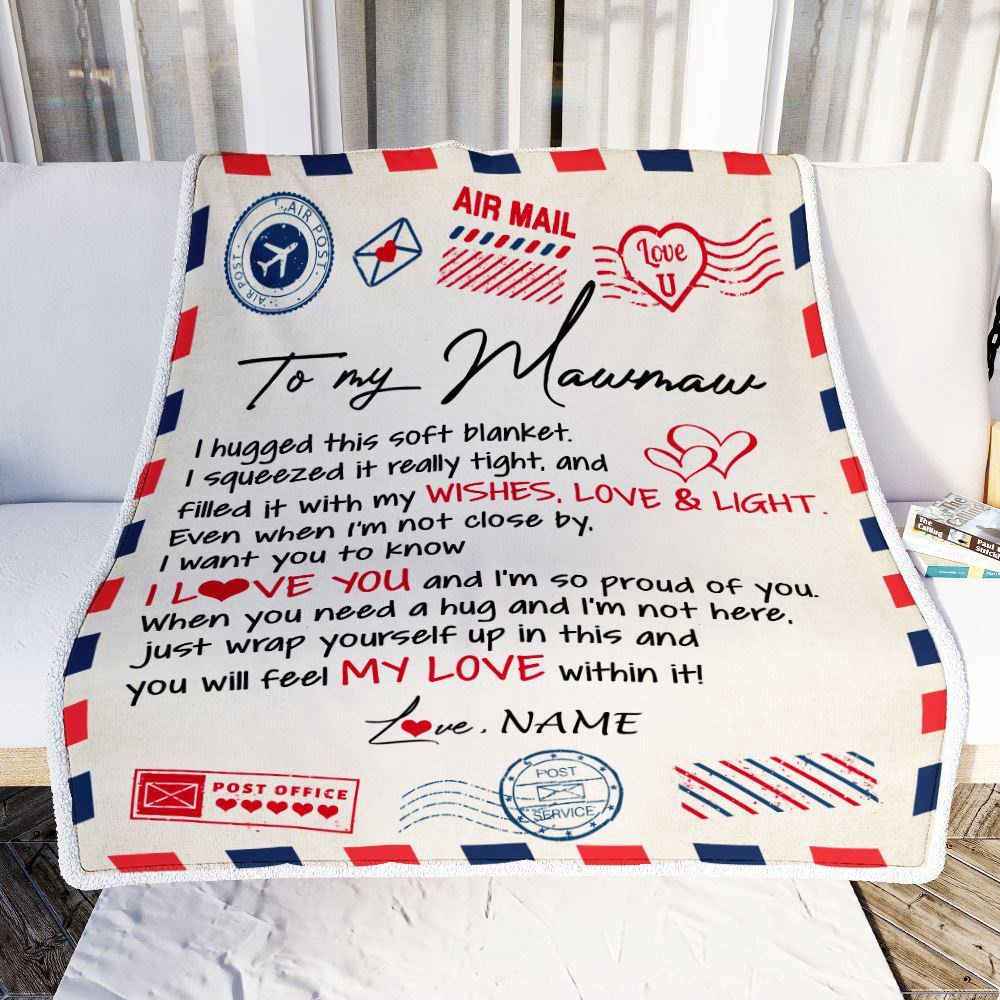 AIR POST
AIR POST
AIR MAIL
Love
U
To my Mawmaw
I hugged this soft blanket.
I squeezed it really tight, and
filled it with my WISHES, LOVE & LIGHT.
Even when I'm not close by,
I want you to know
I L♥VE YOU and I'm so proud of you.
When you need a hug and I'm not here,
just wrap yourself up in this and
you will feel MY LOVE within it!
L♥ve, NAME
POST OFFICE
POST
SERVICE
The
Calling